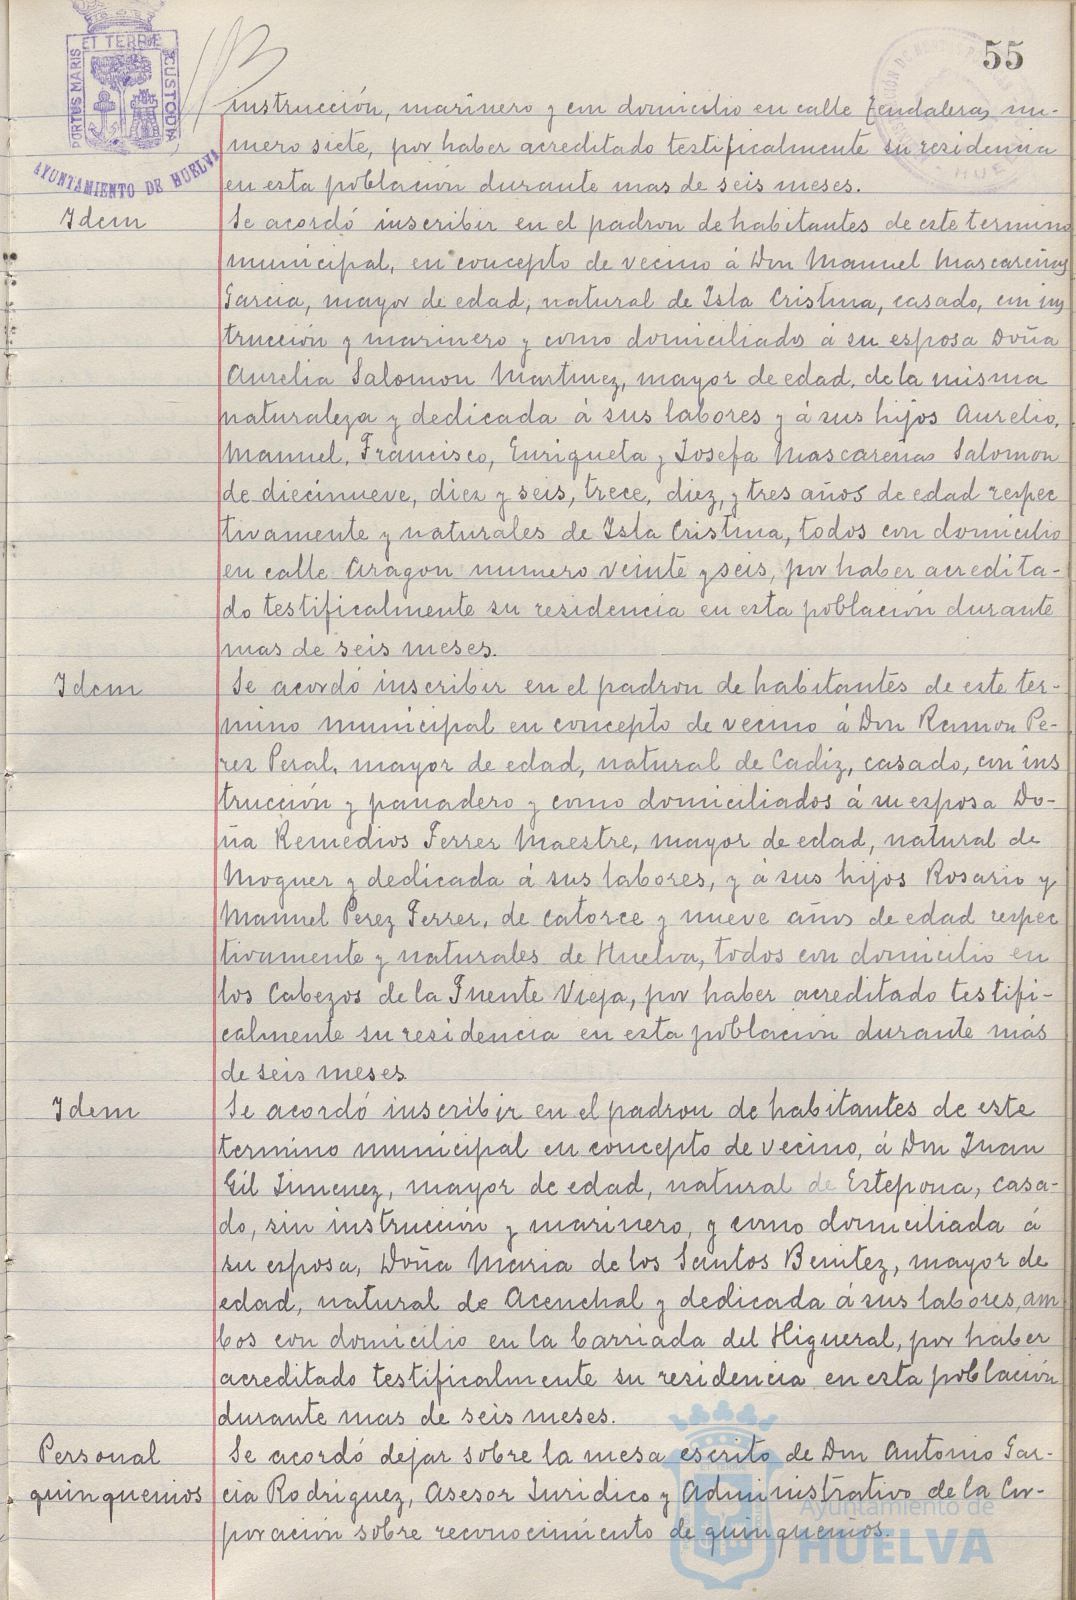 55
ET TERRÆ
PORTUS MARIS
CUSTODIA
AYUNTAMIENTO DE HUELVA
instrucción, marinero y con domicilio en calle Tendaleras nu-
mero siete, por haber acreditado testificalmente su residencia
en esta población durante mas de seis meses.
Idem
Se acordó inscribir en el padron de habitantes de este termino
municipal, en concepto de vecino á Don Manuel Mascareñas
Garcia, mayor de edad, natural de Isla Cristina, casado, con ins
trucción y marinero y como domiciliados á su esposa Doña
Aurelia Salomon Martinez, mayor de edad, de la misma
naturaleza y dedicada á sus labores y á sus hijos Aurelio,
Manuel, Francisco, Enriqueta y Josefa Mascareñas Salomon
de diecinueve, diez y seis, trece, diez, y tres años de edad respec
tivamente y naturales de Isla Cristina, todos con domicilio
en calle Aragon numero veinte y seis, por haber acredita-
do testificalmente su residencia en esta población durante
mas de seis meses.
Idem
Se acordó inscribir en el padron de habitantes de este ter-
mino municipal en concepto de vecino á Don Ramon Pe-
rez Peral, mayor de edad, natural de Cadiz, casado, con ins
trucción y panadero y como domiciliados á su esposa Do-
ña Remedios Ferrer Maestre, mayor de edad, natural de
Moguer y dedicada á sus labores, y á sus hijos Rosario y
Manuel Perez Ferrer, de catorce y nueve años de edad respec
tivamente y naturales de Huelva, todos con domicilio en
los Cabezos de la Fuente Vieja, por haber acreditado testifi-
calmente su residencia en esta población durante más
de seis meses
Idem
Se acordó inscribir en el padron de habitantes de este
termino municipal en concepto de vecino, á Don Juan
Gil Jimenez, mayor de edad, natural de Estepona, casa-
do, sin instrucción y marinero, y como domiciliada á
su esposa, Doña Maria de los Santos Benitez, mayor de
edad, natural de Acenchal y dedicada á sus labores, am
bos con domicilio en la barriada del Higueral, por haber
acreditado testificalmente su residencia en esta población
durante mas de seis meses.
Personal
quinquenios
Se acordó dejar sobre la mesa escrito de Don Antonio Gar-
cia Rodriguez, Asesor Juridico y Administrativo de la Cor-
poración sobre reconocimiento de quinquenios.
Ayuntamiento de
HUELVA